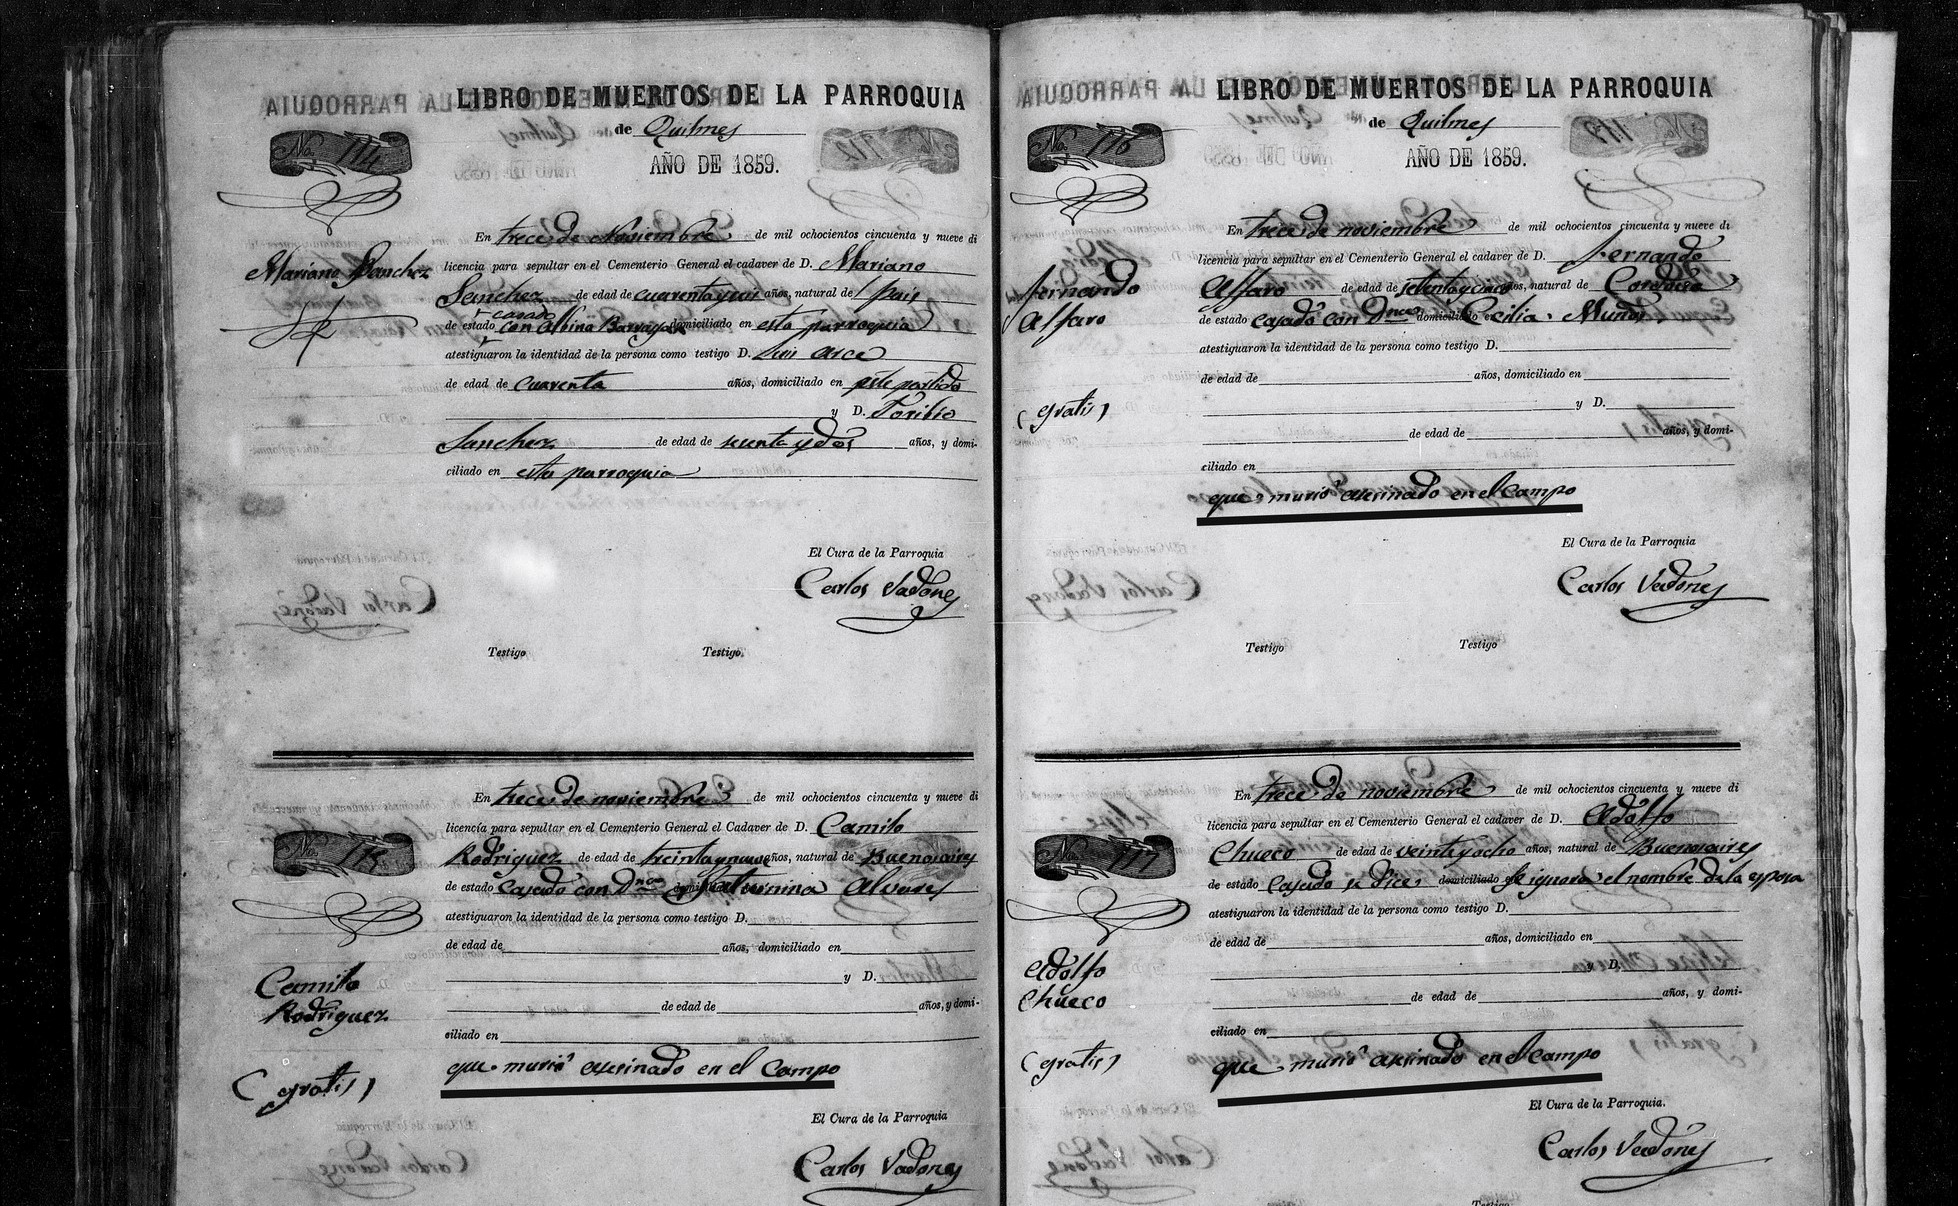 LIBRO DE MUERTOS DE LA PARROQUIA
de Quilmes
No. 114
AÑO DE 1859.
En trece de Noviembre de mil ochocientos cincuenta y nueve di
Mariano Sanchez
licencia para sepultar en el Cementerio General el cadaver de D. Mariano
Sanchez de edad de cuarenta y años, natural de l pais
casado
de estado con Albina Barragan domiciliado en esta parroquia
atestiguaron la identidad de la persona como testigo D. Luis Arce
de edad de cuarenta años, domiciliado en este partido
y D. Toribio
Sanchez de edad de y dos años, y domi-
ciliado en esta parroquia
El Cura de la Parroquia
Carlos Vadones
Testigo Testigo
En trece de noviembre de mil ochocientos cincuenta y nueve di
licencía para sepultar en el Cementerio General el Cadaver de D. Camilo
No. 115
Rodriguez de edad de treinta y nueve años, natural de Buenosaires
de estado casado con Dna domiciliado Saturnina Alvares
atestiguaron la identidad de la persona como testigo D.
de edad de años, domiciliado en
Camilo
Rodriguez
y D.
de edad de años, y domi-
ciliado en
(gratis)
que murió asesinado en el campo
El Cura de la Parroquia
Carlos Vadones
LIBRO DE MUERTOS DE LA PARROQUIA
de Quilmes
No. 116
AÑO DE 1859.
En trece de noviembre de mil ochocientos cincuenta y nueve di
licencia para sepultar en el Cementerio General el cadaver de D. Fernando
Fernando
Alfaro
Alfaro de edad de setenta y cinco años, natural de Cordova
de estado casado con Dna domiciliado en Cecilia Muños
atestiguaron la identidad de la persona como testigo D.
de edad de años, domiciliado en
(gratis)
y D.
de edad de años, y domi-
ciliado en
que murió asesinado en el campo
El Cura de la Parroquia
Carlos Vadones
Testigo Testigo
En trece de noviembre de mil ochocientos cincuenta y nueve di
licencia para sepultar en el Cementerio General el cadaver de D. Adolfo
No. 117
Chueco de edad de veinte y ocho años, natural de Buenosaires
de estado casado se dice domiciliado se ignora el nombre de la esposa
atestiguaron la identidad de la persona como testigo D.
de edad de años, domiciliado en
Adolfo
Chueco
y D.
de edad de años, y domi-
ciliado en
(gratis)
que murió asesinado en el campo
El Cura de la Parroquia.
Carlos Vadones
Testigo